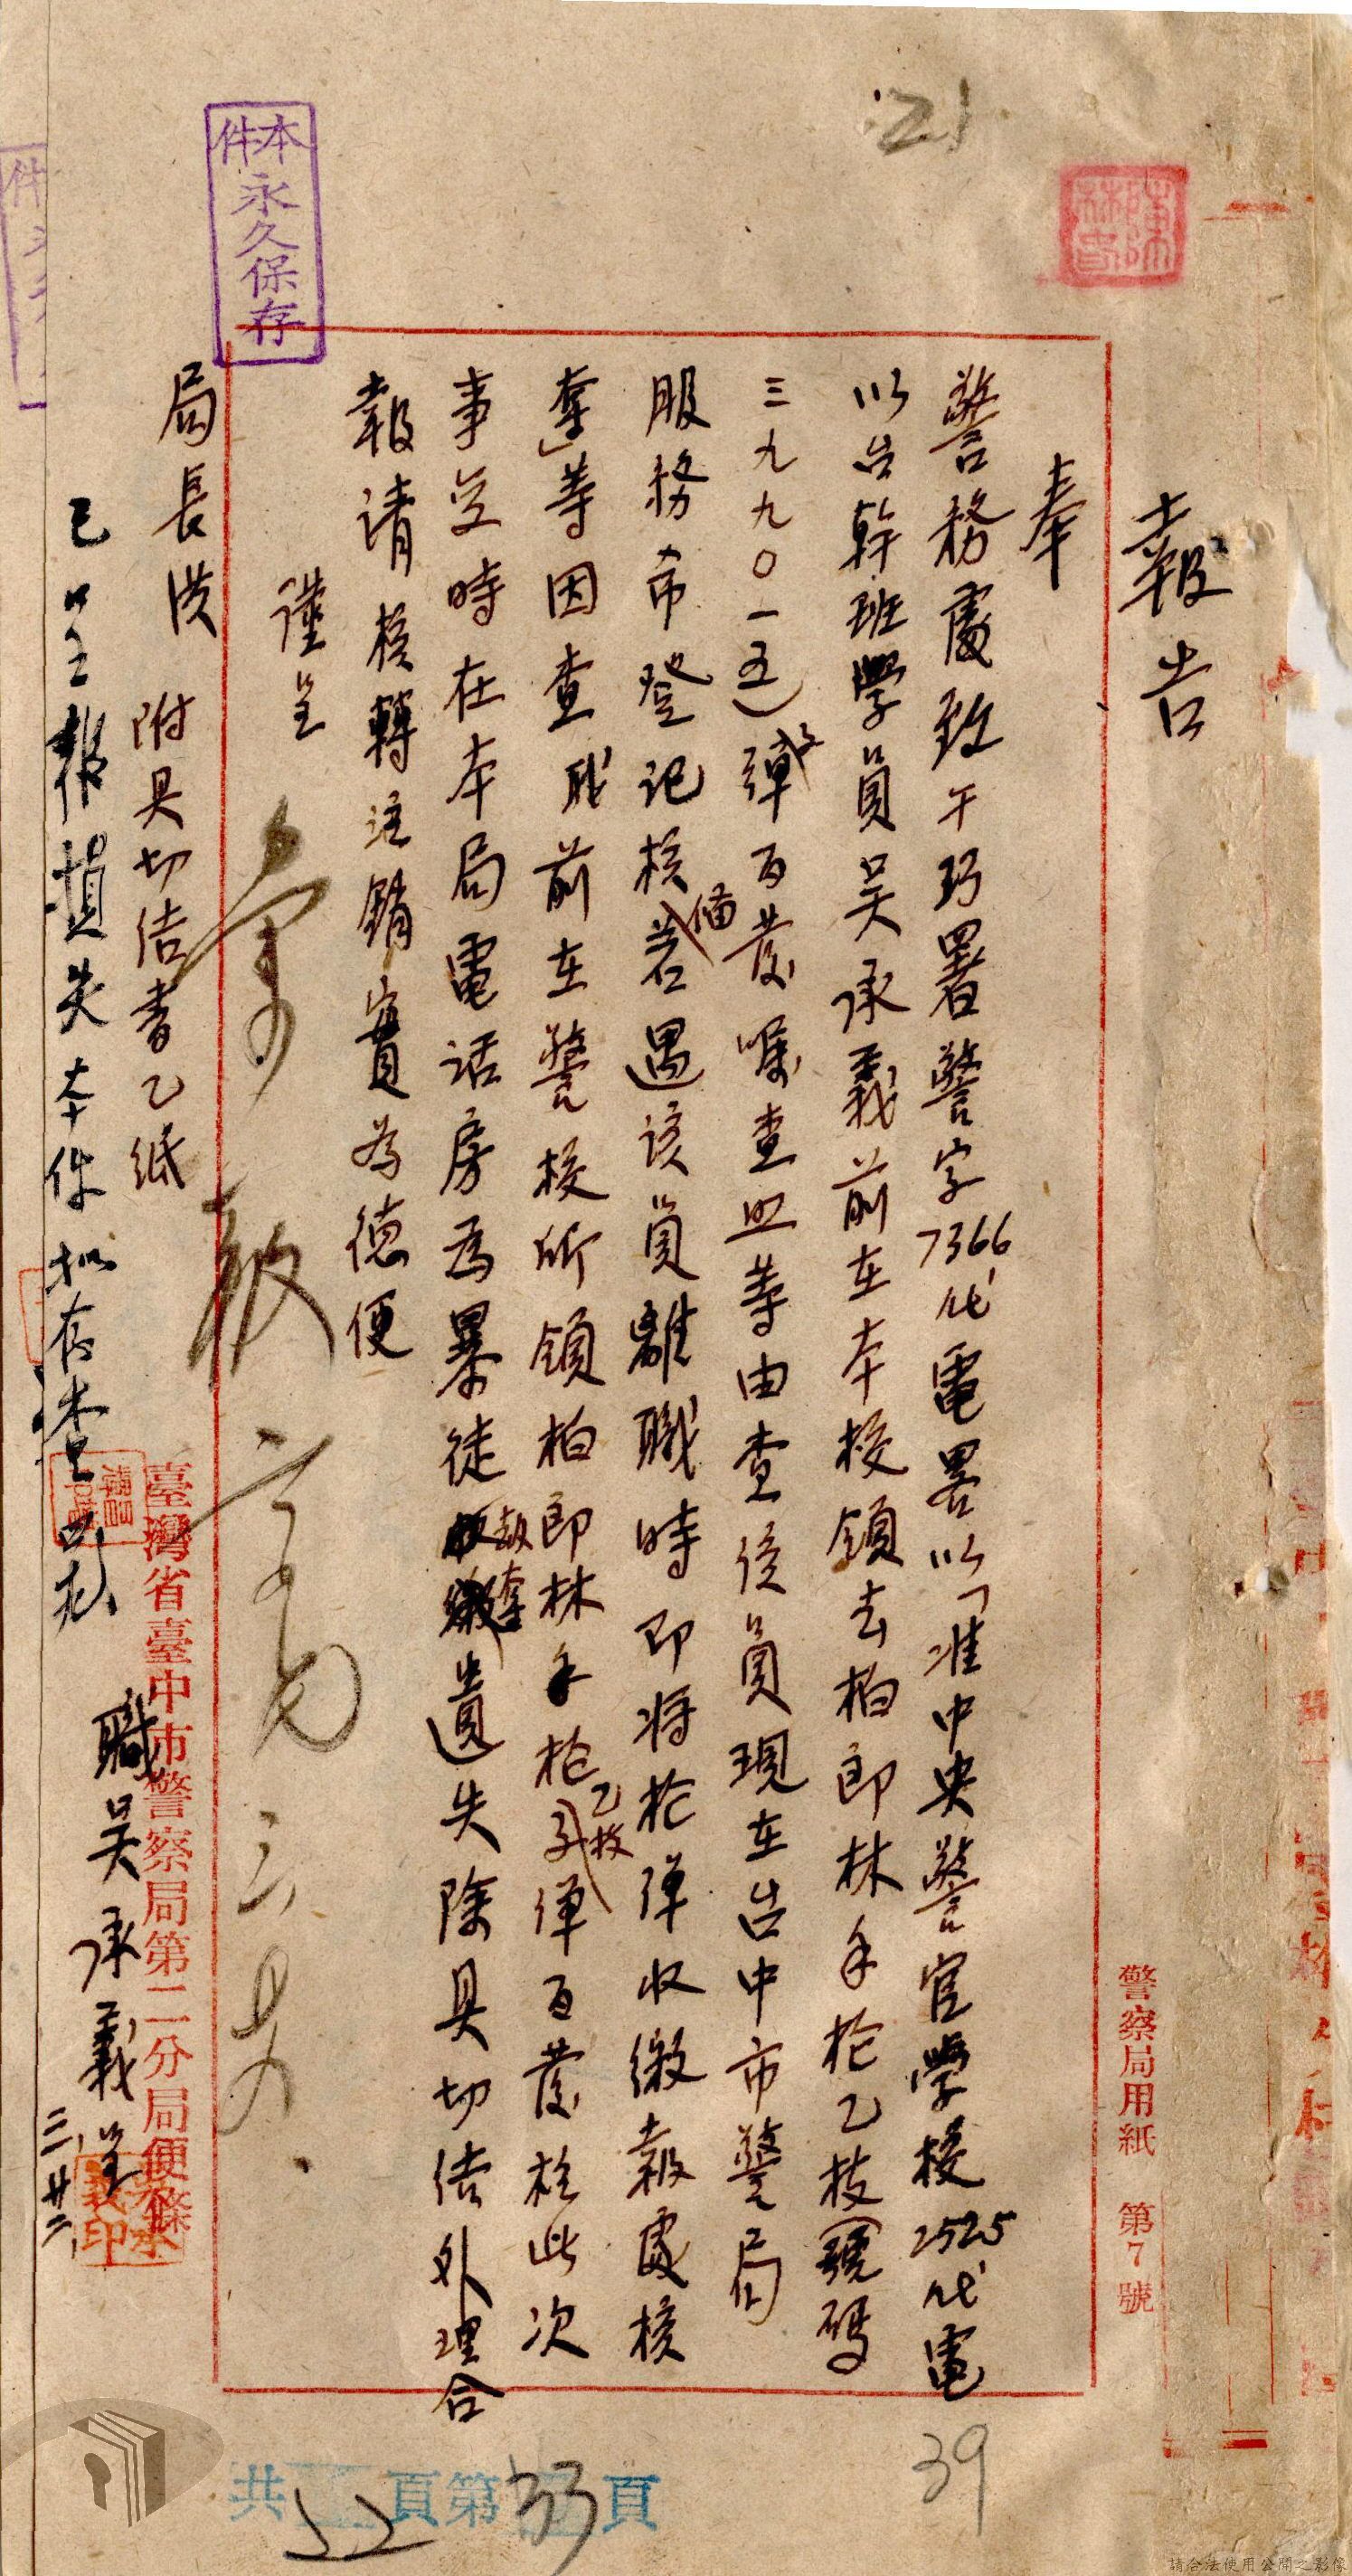 報告
奉
警務處致午巧署警字7366代電畧以「准中央警官學校2525代電
以台幹班學員吴承義前在本校領去柏郎林手枪乙枝(號碼
三九九〇一五)彈百發嘱查照等由查该員現在台中市警局
服務希登記核備若遇该員離職時即将枪彈收缴報處核
奪」等因查职前在警校所領柏郎林手枪乙枝子弹百發於此次
事变時在本局電话房為暴徒劫奪遺失除具切结外理合
報请核轉註銷實為德便
謹呈
局長洪
附具切结書乙纸
職吴承義呈
三、廿二、
已呈報損失本件拟存查
本件永久保存
臺灣省臺中市警察局第二分局便條
警察局用紙 第7號
21
39
共22頁第33頁
請合法使用公開之影像